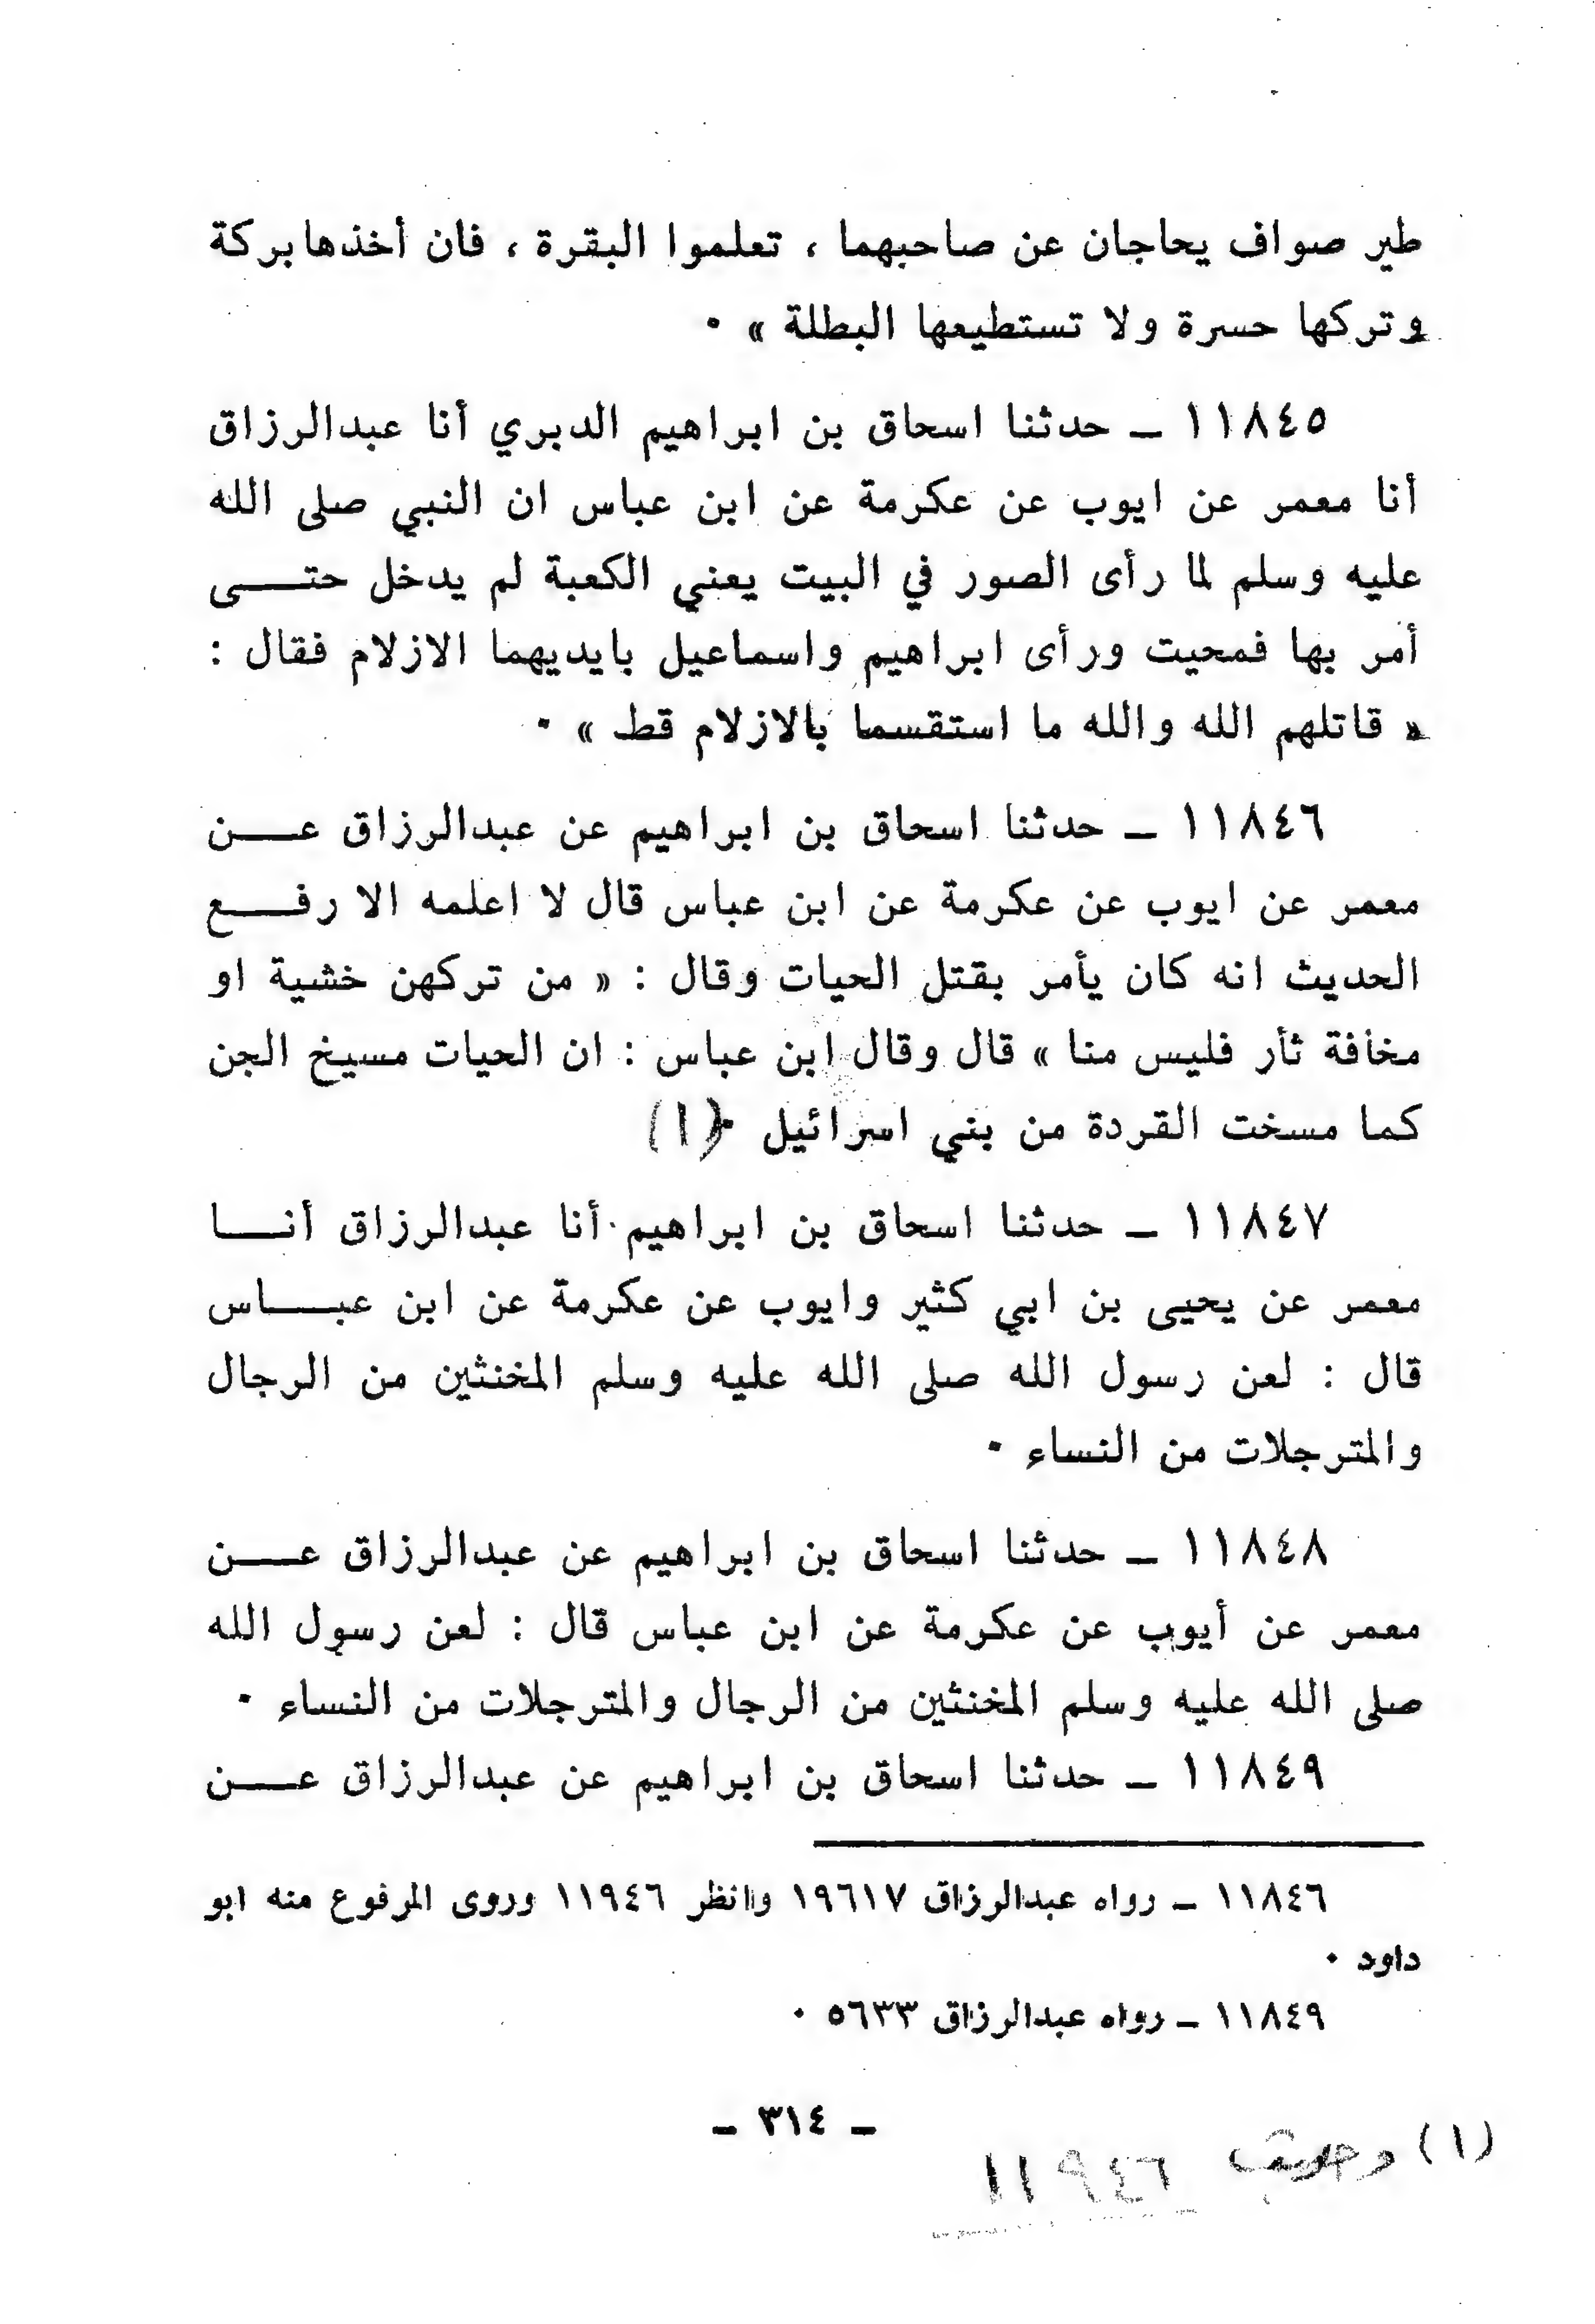 طير صواف يحاجان عن صاحبهما ، تعلموا البقرة ، فان أخذها بركة
وتركها حسرة ولا تستطيعها البطلة » ٠
١١٨٤٥ ــ حدثنا اسحاق بن ابراهيم الدبري أنا عبدالرزاق
أنا معمر عن ايوب عن عكرمة عن ابن عباس ان النبي صلى الله
عليه وسلم لما رأى الصور في البيت يعني الكعبة لم يدخل حتــى
أمر بها فمحيت ورأى ابراهيم واسماعيل بايديهما الازلام فقال :
« قاتلهم الله والله ما استقسما بالازلام قط » ٠
١١٨٤٦ ــ حدثنا اسحاق بن ابراهيم عن عبدالرزاق عــن
معمر عن ايوب عن عكرمة عن ابن عباس قال لا اعلمه الا رفــع
الحديث انه كان يأمر بقتل الحيات وقال : « من تركهن خشية او
مخافة ثأر فليس منا » قال وقال ابن عباس : ان الحيات مسيخ الجن
كما مسخت القردة من بني اسرائيل ٠(١)
١١٨٤٧ ــ حدثنا اسحاق بن ابراهيم أنا عبدالرزاق أنــا
معمر عن يحيى بن ابي كثير وايوب عن عكرمة عن ابن عبــاس
قال : لعن رسول الله صلى الله عليه وسلم المخنثين من الرجال
والمترجلات من النساء ٠
١١٨٤٨ ــ حدثنا اسحاق بن ابراهيم عن عبدالرزاق عــن
معمر عن أيوب عن عكرمة عن ابن عباس قال : لعن رسول الله
صلى الله عليه وسلم المخنثين من الرجال والمترجلات من النساء ٠
١١٨٤٩ ــ حدثنا اسحاق بن ابراهيم عن عبدالرزاق عــن
١١٨٤٦ ــ رواه عبدالرزاق ١٩٦١٧ وانظر ١١٩٤٦ وروى المرفوع منه ابو
داود ٠
١١٨٤٩ ــ رواه عبدالرزاق ٥٦٣٣ ٠
ــ ٣١٤ ــ
(١) وحديث ١١٩٤٦